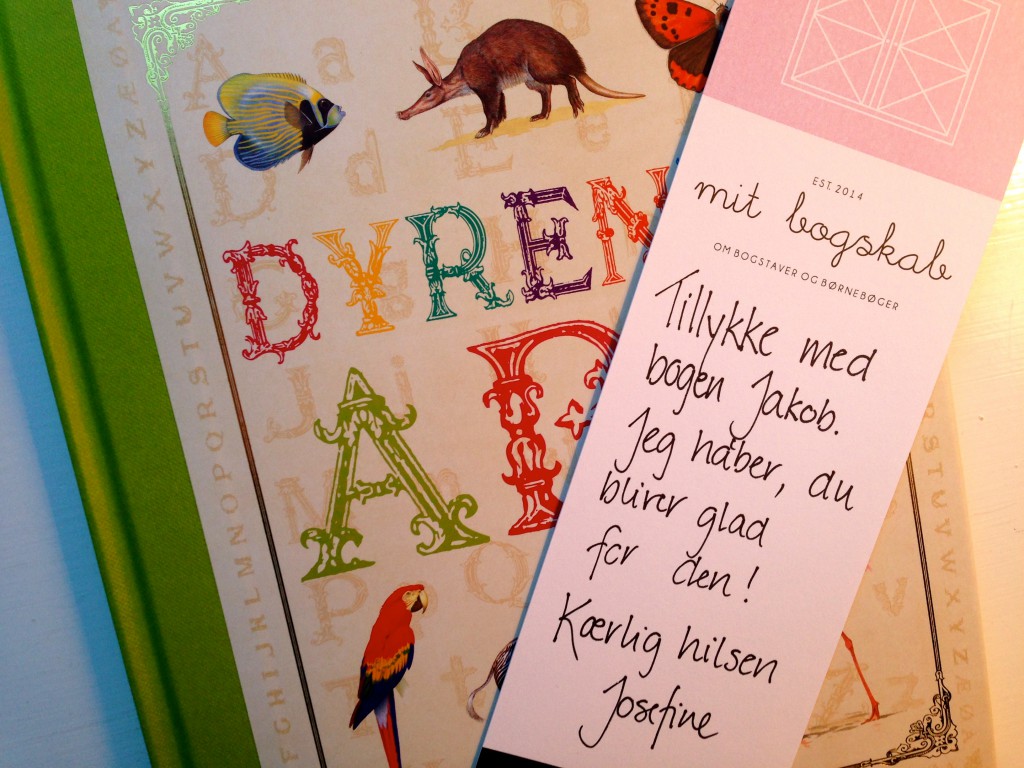 DYREN
A
EST. 2014
mit bogskab
OM BOGSTAVER OG BØRNEBØGER
Tillykke med
bogen Jakob.
Jeg håber, du
bliver glad
for den!
Kærlig hilsen
Josefine
FGHIJKLMNOPQRSTUVWXYZÆØA